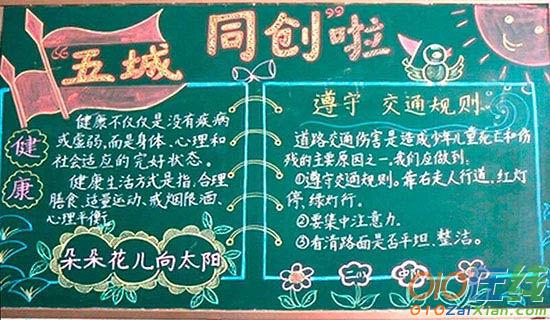 “五城同创”啦
健康
健康不仅仅是没有疾病
或虚弱,而是身体、心理和
社会适应的完好状态。
健康生活方式是指,合理
膳食、适量运动、戒烟限酒、
心理平衡。
朵朵花儿向太阳
遵守 交通规则
道路交通伤害是造成少年儿童死亡和伤
残的主要原因之一,我们应做到:
①遵守交通规则。靠右走人行道,红灯
停,绿灯行。
②要集中注意力。
③看清路面是否平坦、整洁。
二(
中
010在线
010zaixian.com